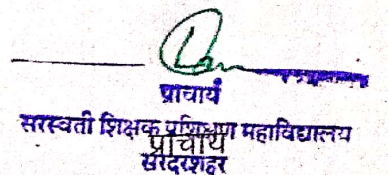 प्राचार्य
सरस्वती शिक्षक प्रशिक्षण महाविद्यालय
प्राचार्य
सरदरशहर